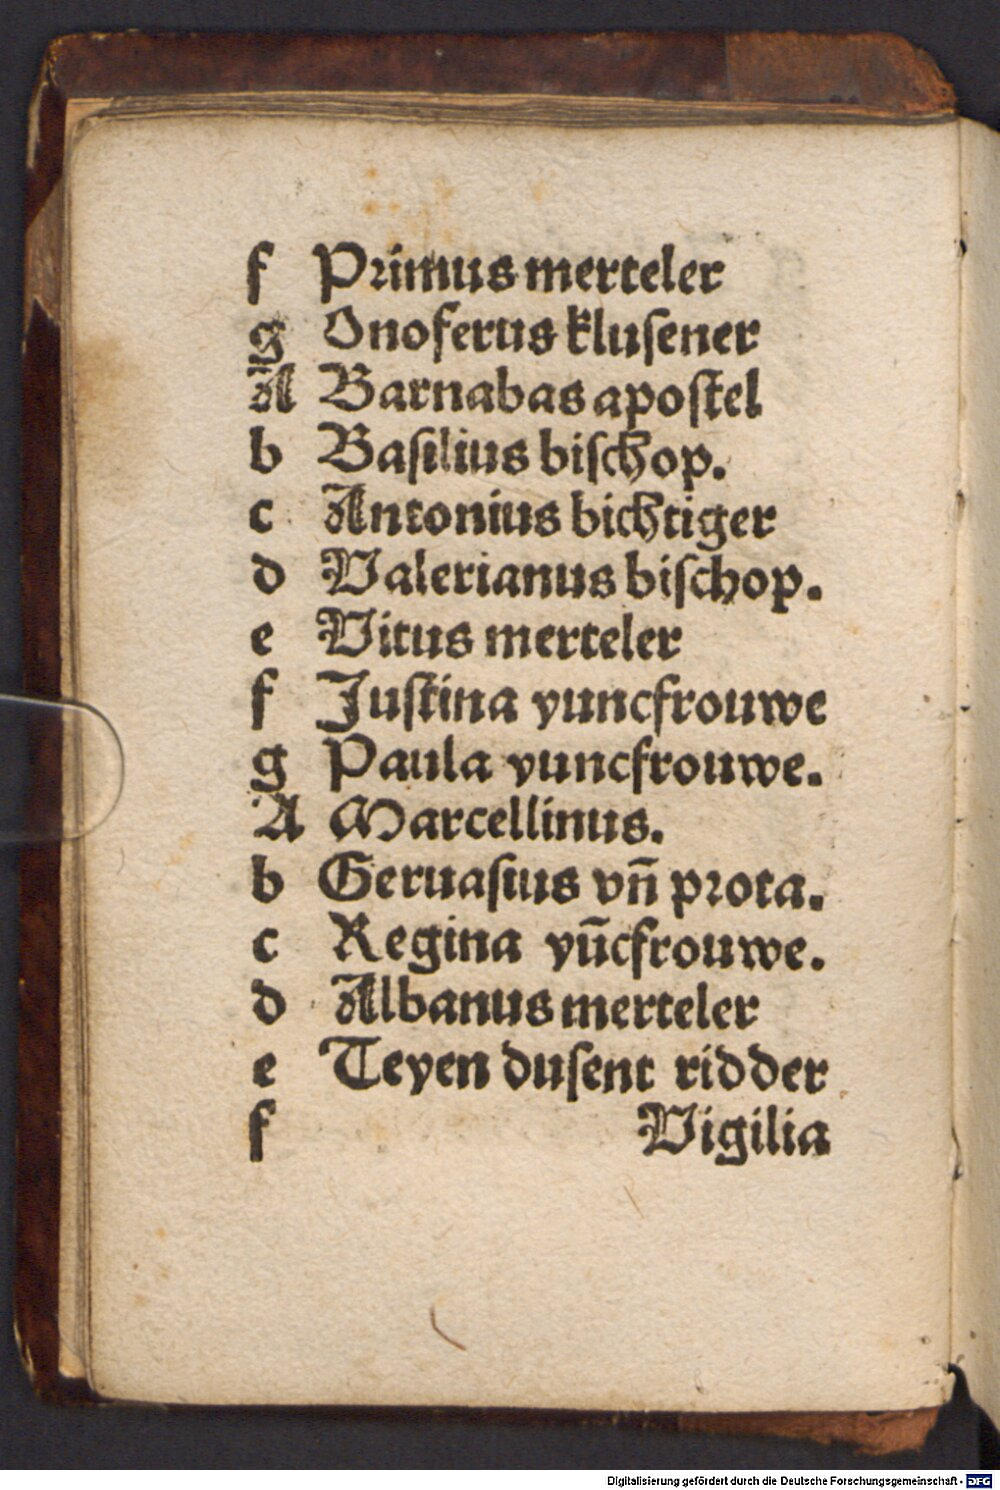 f Primus merteler
g Onoferus kluſener
A Barnabas apoſtel
b Baſilius biſchop.
c Antonius bichtiger
d Valerianus biſchop.
e Vitus merteler
f Juſtina yuncfrouwe
g Paula yuncfrouwe.
A Marcellinus.
b Geruaſius vn̄ prota.
c Regina yūcfrouwe.
d Albanus merteler
e Teyen duſent ridder
f Vigilia
Digitalisierung gefördert durch die Deutsche Forschungsgemeinschaft - DFG